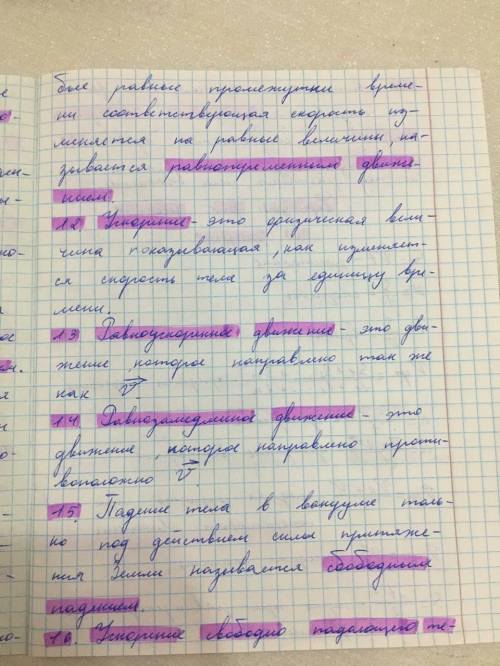 бые равные промежутки време-
ни соответствующая скорость из-
меняется на равные величины, на-
зывается равнопеременным движе-
нием.
12 Ускорение - это физическая вели-
чина показывающая, как изменяет-
ся скорость тела за единицу вре-
мени.
13 Равноускоренное движение - это дви-
жение, которое направлено так же
как v.
14. Равнозамедленное движение - это
движение, которое направлено проти-
воположно v.
15. Падение тела в вакууме толь-
ко под действием силы притяже-
ния Земли называется свободным
падением.
16. Ускорение свободно падающего те-